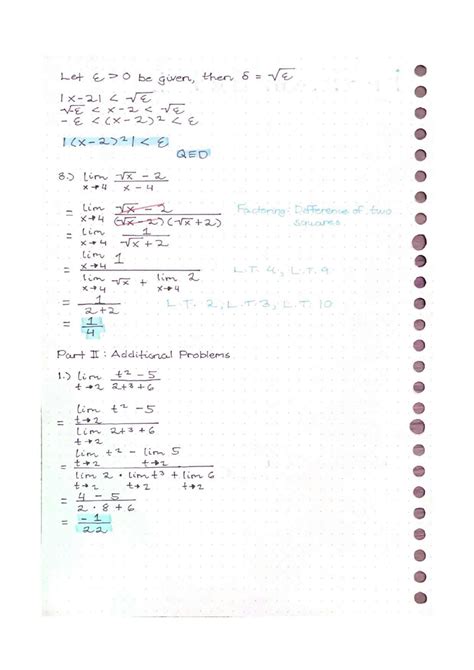 Let ε > 0 be given, then δ = √ε
|x-2| < √ε
-√ε < x-2 < √ε
-ε < (x-2)² < ε
|(x-2)²| < ε
QED
8.) lim x→4 (√x - 2)/(x - 4)
= lim x→4 (√x - 2)/((√x - 2)(√x + 2)) Factoring: Difference of two squares.
= lim x→4 1/(√x + 2)
= (lim x→4 1)/(lim x→4 √x + lim x→4 2) L.T. 4, L.T. 9
= 1/(2+2) L.T. 2, L.T. 3, L.T. 10
= 1/4
Part II: Additional Problems
1.) lim t→2 (t² - 5)/(2t³ + 6)
= (lim t→2 t² - 5)/(lim t→2 2t³ + 6)
= (lim t→2 t² - lim t→2 5)/(lim t→2 2 · lim t→2 t³ + lim t→2 6)
= (4 - 5)/(2 · 8 + 6)
= -1/22